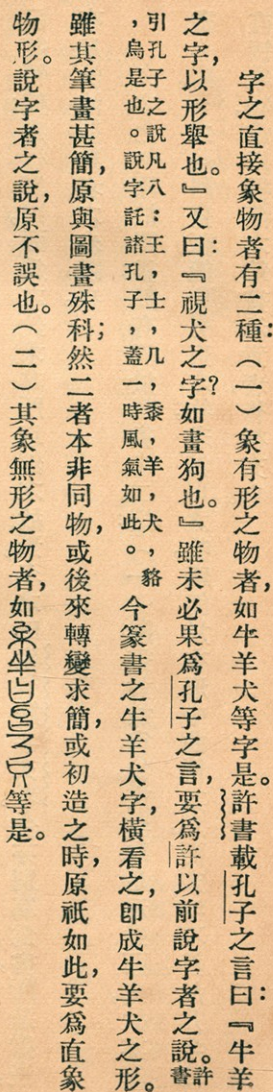 字之直接象物者有二種：（一）象有形之物者，如牛羊犬等字是。許書載孔子之言曰：『牛羊
之字，以形舉也。』又曰：『視犬之字？如畫狗也。』雖未必果爲孔子之言，要爲許以前說字者之說。許書
引孔子之說凡八：王，士，几，黍，羊，犬，貉
，烏是也。說字託諸孔子，蓋一時風氣如此。今篆書之牛羊犬字，橫看之，卽成牛羊犬之形。
雖其筆畫甚簡，原與圖畫殊科；然二者本非同物，或後來轉變求簡，或初造之時，原祇如此，要爲直象
物形。說字者之說，原不誤也。（二）其象無形之物者，如等是。